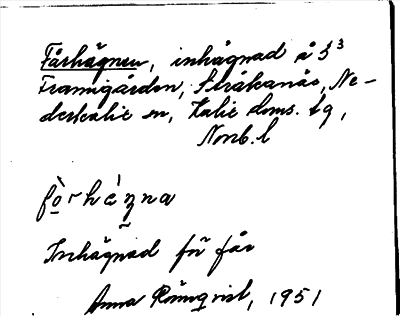 Fårhägnen, inhägnad å 5³
Framigården, Stråkanäs, Ne-
derkalix sn, Kalix doms. tg,
Norrb. l
Inhägnad för får
Anna Rönnqvist, 1951